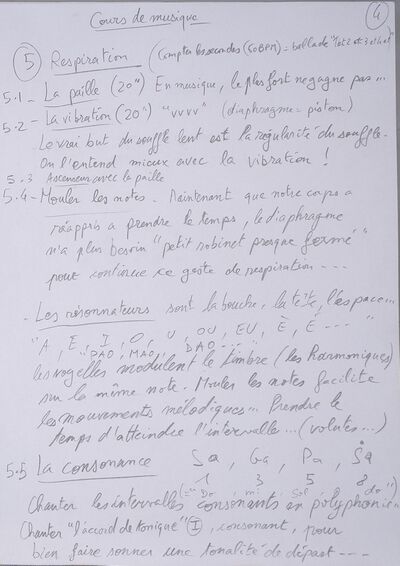 Cours de musique
4
5 Respiration (Compter les secondes (60BPM) = ballade "1et 2 et 3 et 4 et"
5.1 - La paille (20") En musique, le plus fort ne gagne pas...
5.2 - La vibration (20") "vvvv" (diaphragme = piston)
Le vrai but du souffle lent est la régularité du souffle.
On l'entend mieux avec la vibration !
5.3 Ascenseur avec la paille
5.4 - Mouler les notes. Maintenant que notre corps a
réappris a prendre le temps, le diaphragme
n'a plus besoin "petit robinet presque fermé"
pour continue ce geste de respiration ---
- Les résonnateurs sont la bouche, la tête, l'espace...
"A, E, I, O, U, OU, EU, È, É --- "
"DAO, MAO, DAO ---"
les voyelles modulent le timbre (les Harmoniques)
sur la même note. Mouler les notes facilite
les mouvements mélodiques... Prendre le
temps d'atteindre l'intervalle... (volutes...)
5.5 La consonance Sa, Ga, Pa, Ṡa
1 3 5 8
Do mi Sol do
Chanter les intervalles consonants en polyphonie
Chanter "l'accord de tonique" (I), consonant, pour
bien faire sonner une tonalité de départ ----